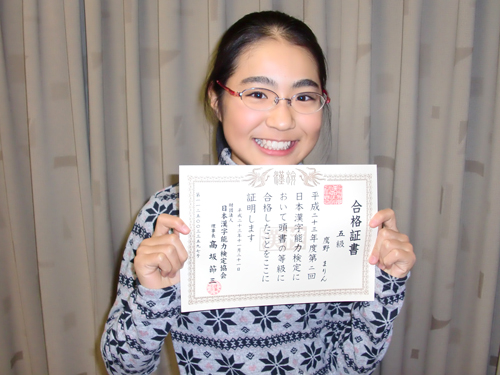 合格証書
五級
度野 まりん
平成二十三年度第二回
日本漢字能力検定に
おいて頭書の等級に
合格したことをここに
証明します
財団法人
日本漢字能力検定協会
理事長 高坂節三